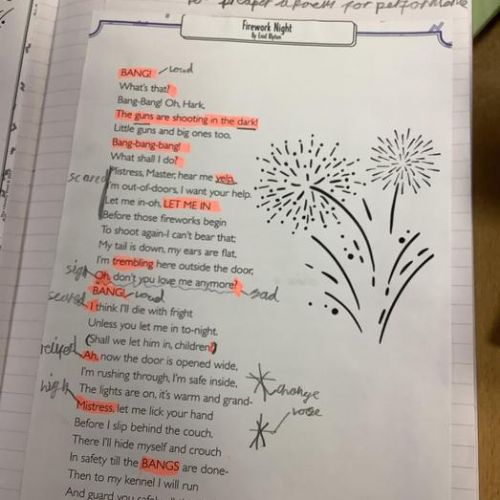 to prepare a poem for performance
Firework Night
By Enid Blyton
BANG! loud
What's that?
Bang-Bang! Oh, Hark,
The guns are shooting in the dark!
Little guns and big ones too,
Bang-bang-bang!
What shall I do?
Mistress, Master, hear me yelp,
scared
I'm out-of-doors, I want your help.
Let me in-oh, LET ME IN
Before those fireworks begin
To shoot again-I can't bear that;
My tail is down, my ears are flat,
I'm trembling here outside the door,
sigh Oh, don't you love me anymore? sad
BANG! loud
scared I think I'll die with fright
Unless you let me in to-night.
(Shall we let him in, children?)
Ah, now the door is opened wide,
I'm rushing through, I'm safe inside,
The lights are on, it's warm and grand- change
high Mistress, let me lick your hand voice
Before I slip behind the couch.
There I'll hide myself and crouch
In safety till the BANGS are done-
Then to my kennel I will run
And guard you